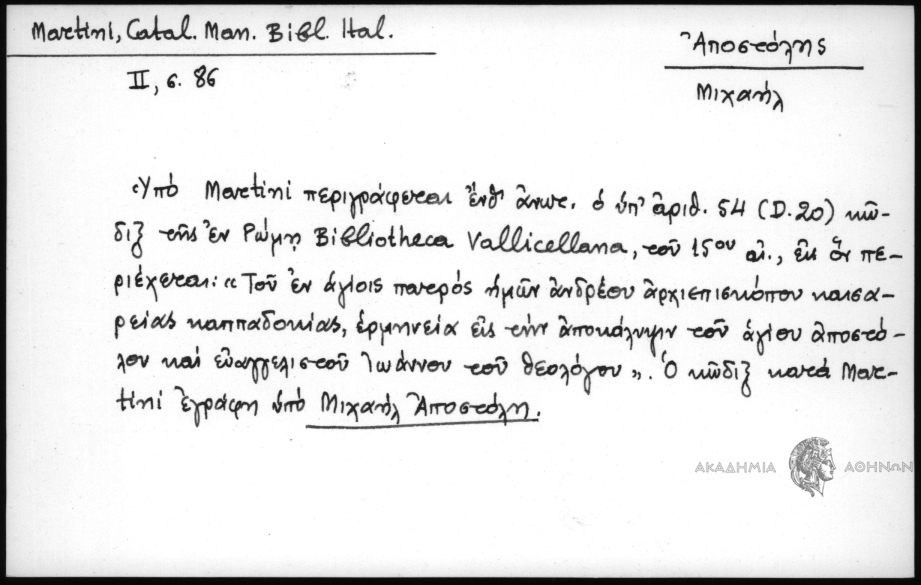 Martini, Catal. Man. Bibl. Ital.
II, σ. 86
Ἀποστόλης
Μιχαήλ
Ὑπό Martini περιγράφεται ἔνθ' ἄνωτ. ὁ ὑπ' ἀριθ. 54 (D.20) κῶ-
διξ τῆς ἐν Ρώμῃ Bibliotheca Vallicellana, τοῦ 15ου αἰ., εἰς ὅν πε-
ριέχεται: «Τοῦ ἐν ἁγίοις πατρός ἡμῶν ἀνδρέου ἀρχιεπισκόπου καισα-
ρείας καππαδοκίας, ἑρμηνεία εἰς τήν ἀποκάλυψιν τοῦ ἁγίου ἀποστό-
λου καί εὐαγγελιστοῦ Ἰωάννου τοῦ θεολόγου». Ὁ κῶδιξ κατά Mar-
tini ἐγράφη ὑπό Μιχαήλ Ἀποστόλη.
ΑΚΑΔΗΜΙΑ ΑΘΗΝΩΝ